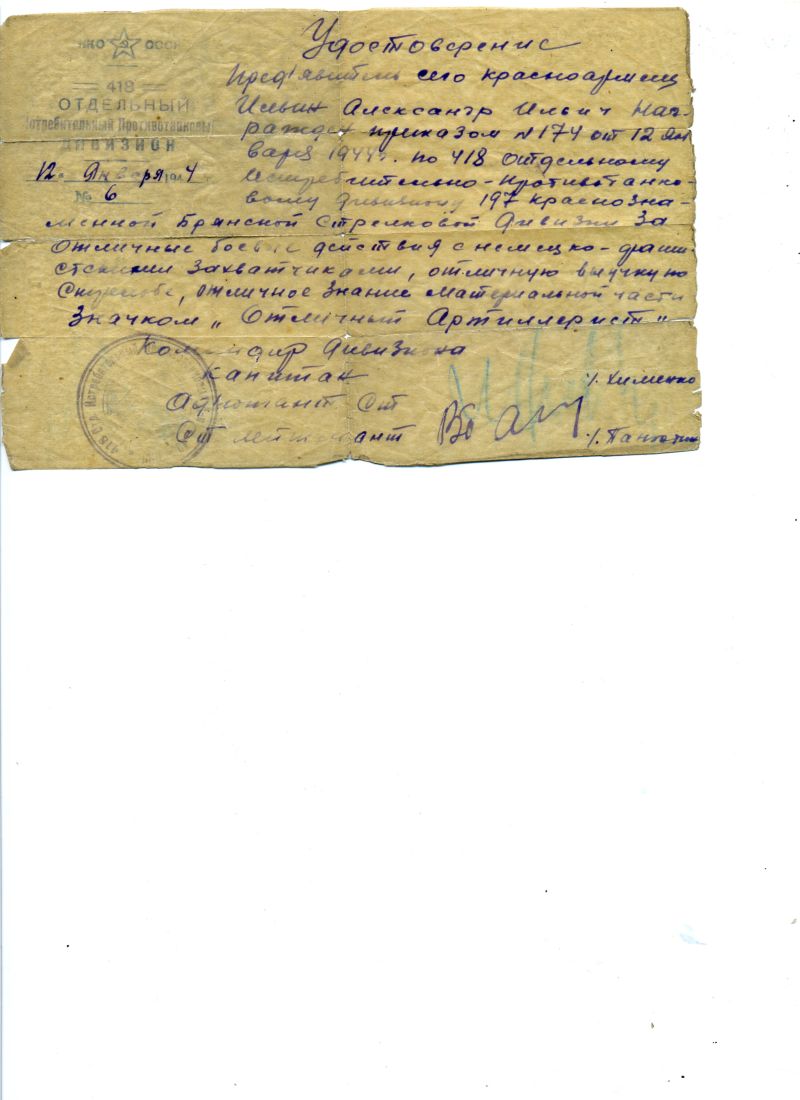 НКО СССР
418
ОТДЕЛЬНЫЙ
Истребительный Противотанковый
ДИВИЗИОН
12 Января 1944
№ 6
Удостоверение
Пред'явитель сего красноармеец
Ильин Александр Ильич Наг-
ражден приказом №174 от 12 Ян
варя 1944г. по 418 отдельному
Истребительно-противотанко-
вому дивизиону 197 Краснозна-
менной Брянской Стрелковой Дивизии За
отличные боевые действия с немецко-фаши-
стскими захватчиками, отличную выучку по
Специальной, отличное знание материальной части
Значком „Отличный Артиллерист"
Командир Дивизиона
Капитан
/. Хименко
Адъютант Ст
Ст лейтенант